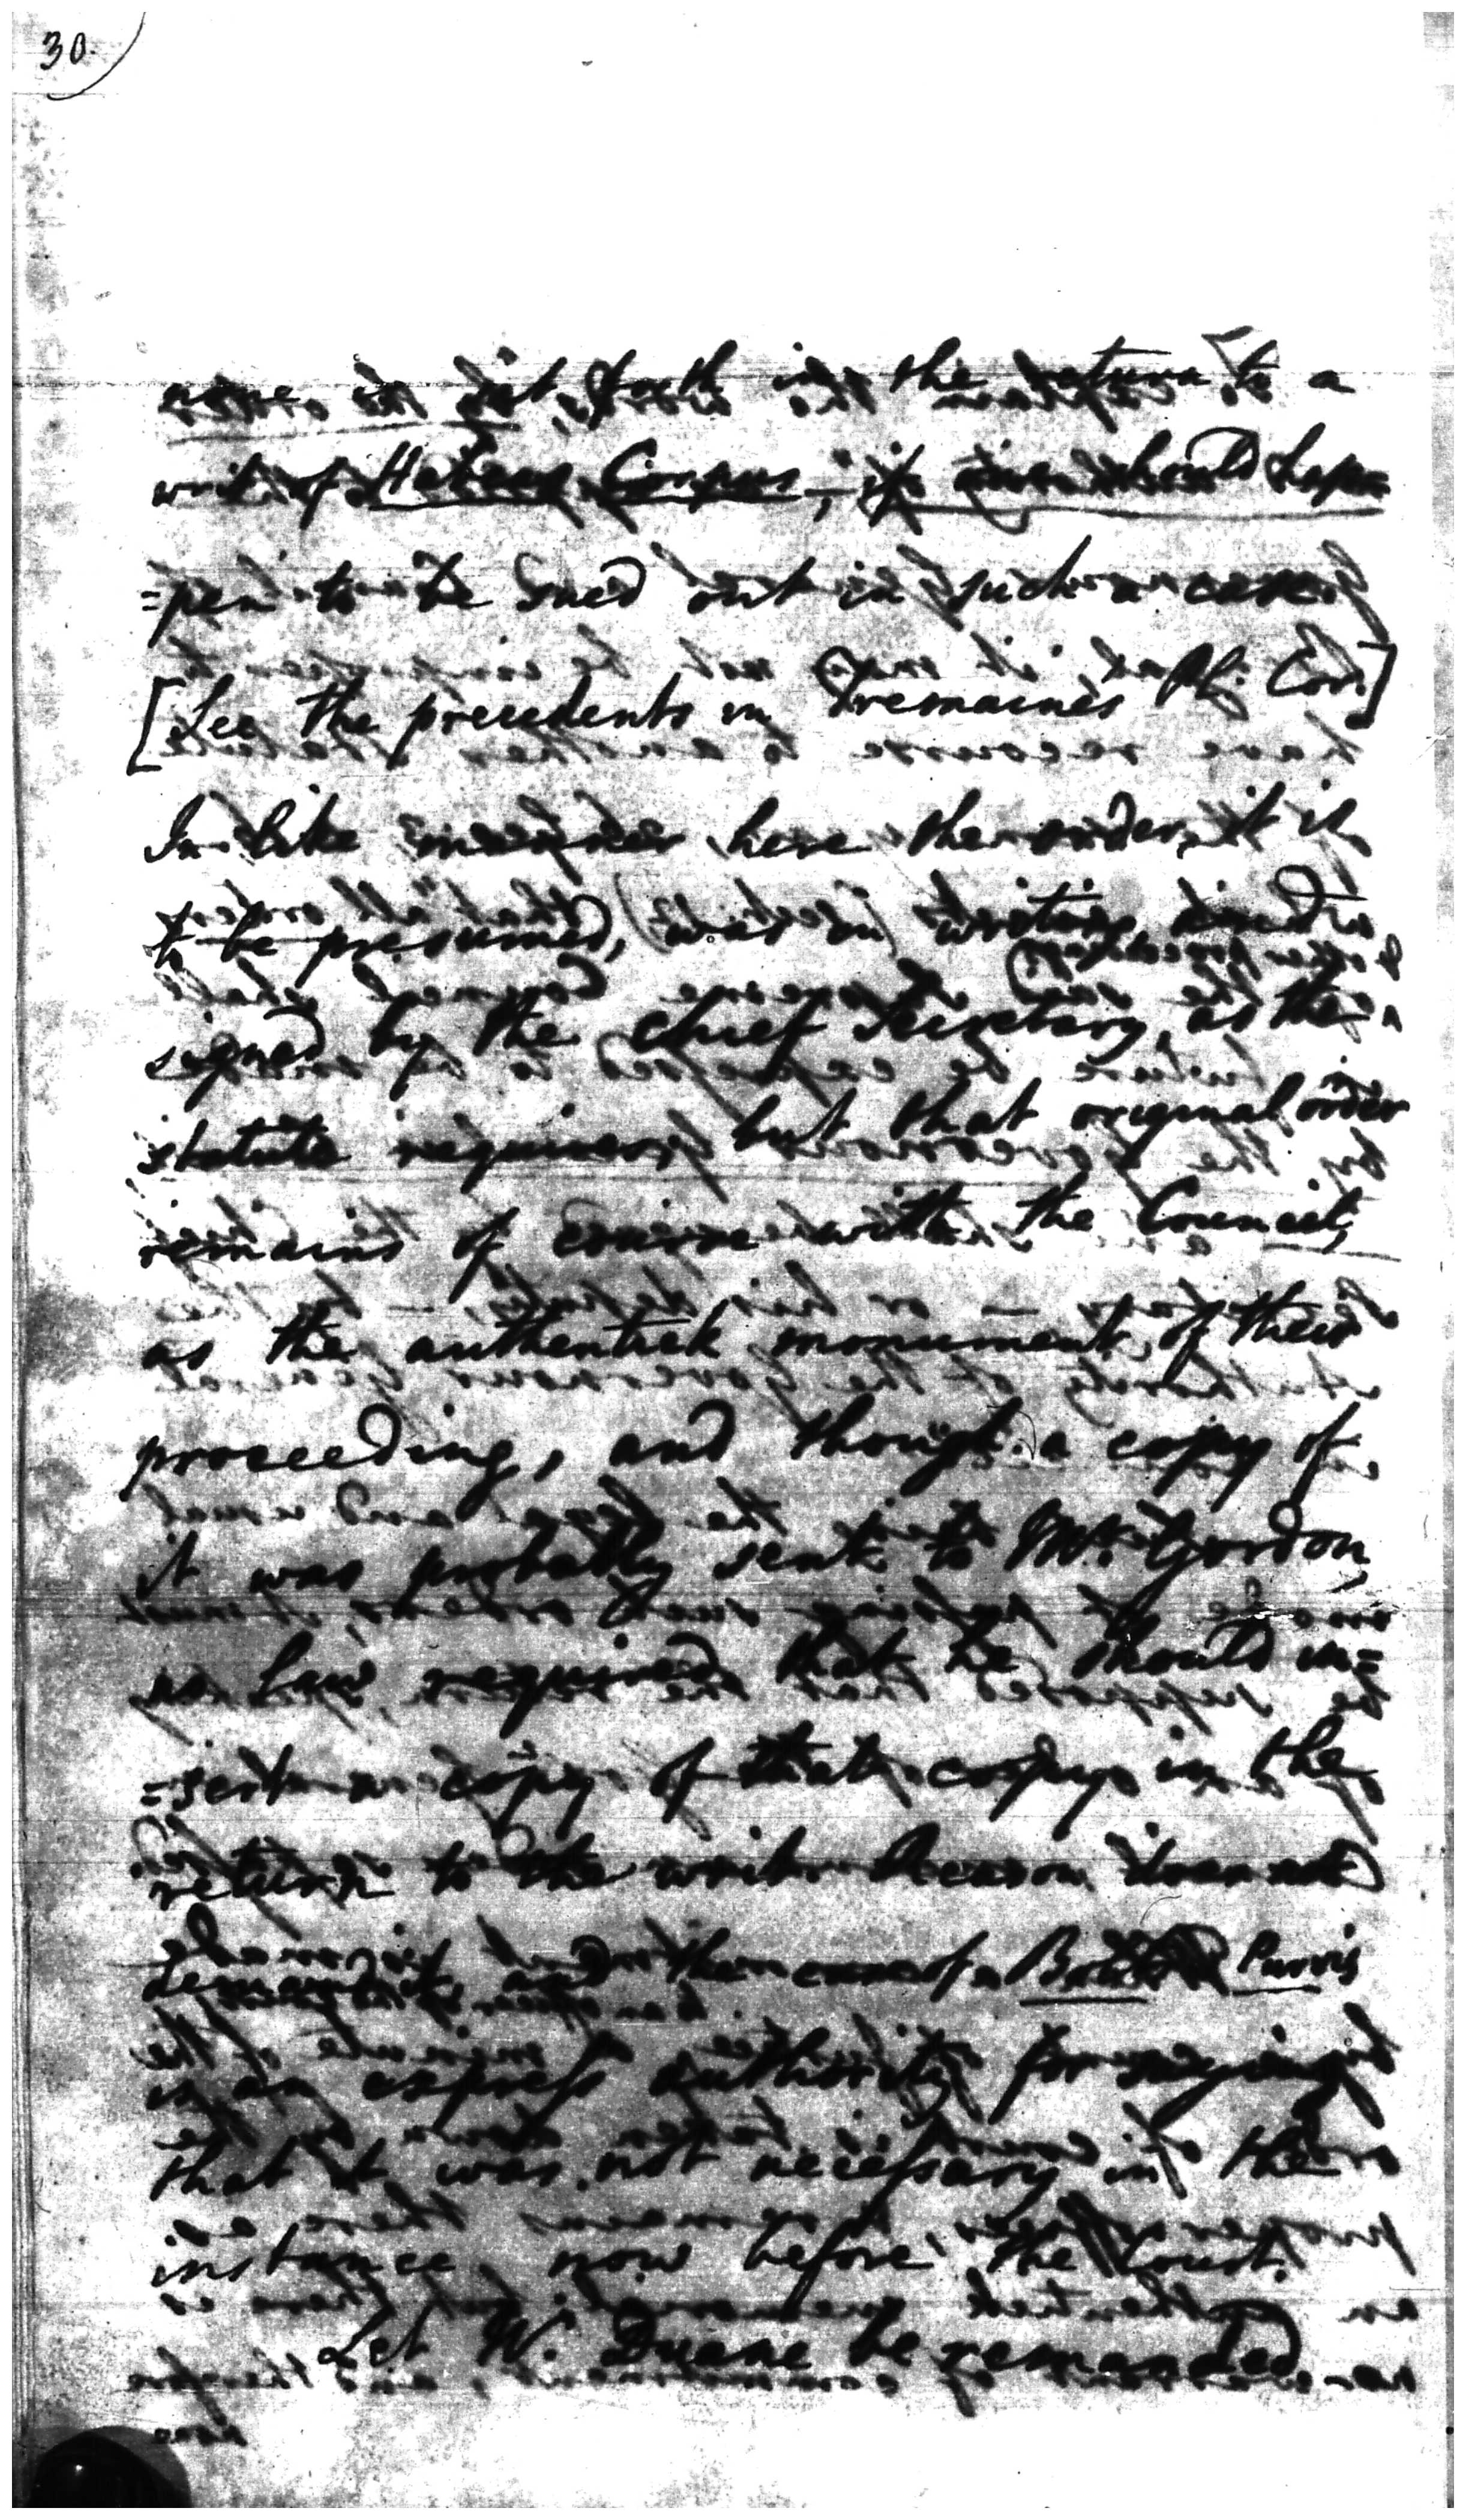 30.
none is set forth in the return to a
writ of Habeas Corpus, if one should hap=
=pen to be sued out in such a case.
[See the precedents in Tremaine's Pl. Cor.]
In like manner here the order, it is
to be presumed, was in writing and
signed by the Chief Secretary, as the
statute requires; but that original order
remains of course with the Council,
as the authentick monument of their
proceeding, and though a copy of
it was probably sent to Mr. Gordon,
no Law required that he should in=
=sert a copy of that copy in the
return to the writ. Reason does not
demand it, and the case of Purvis
is an express authority for saying
that it was not necessary in the
instance now before the Court.
Let W. Duane be remanded.